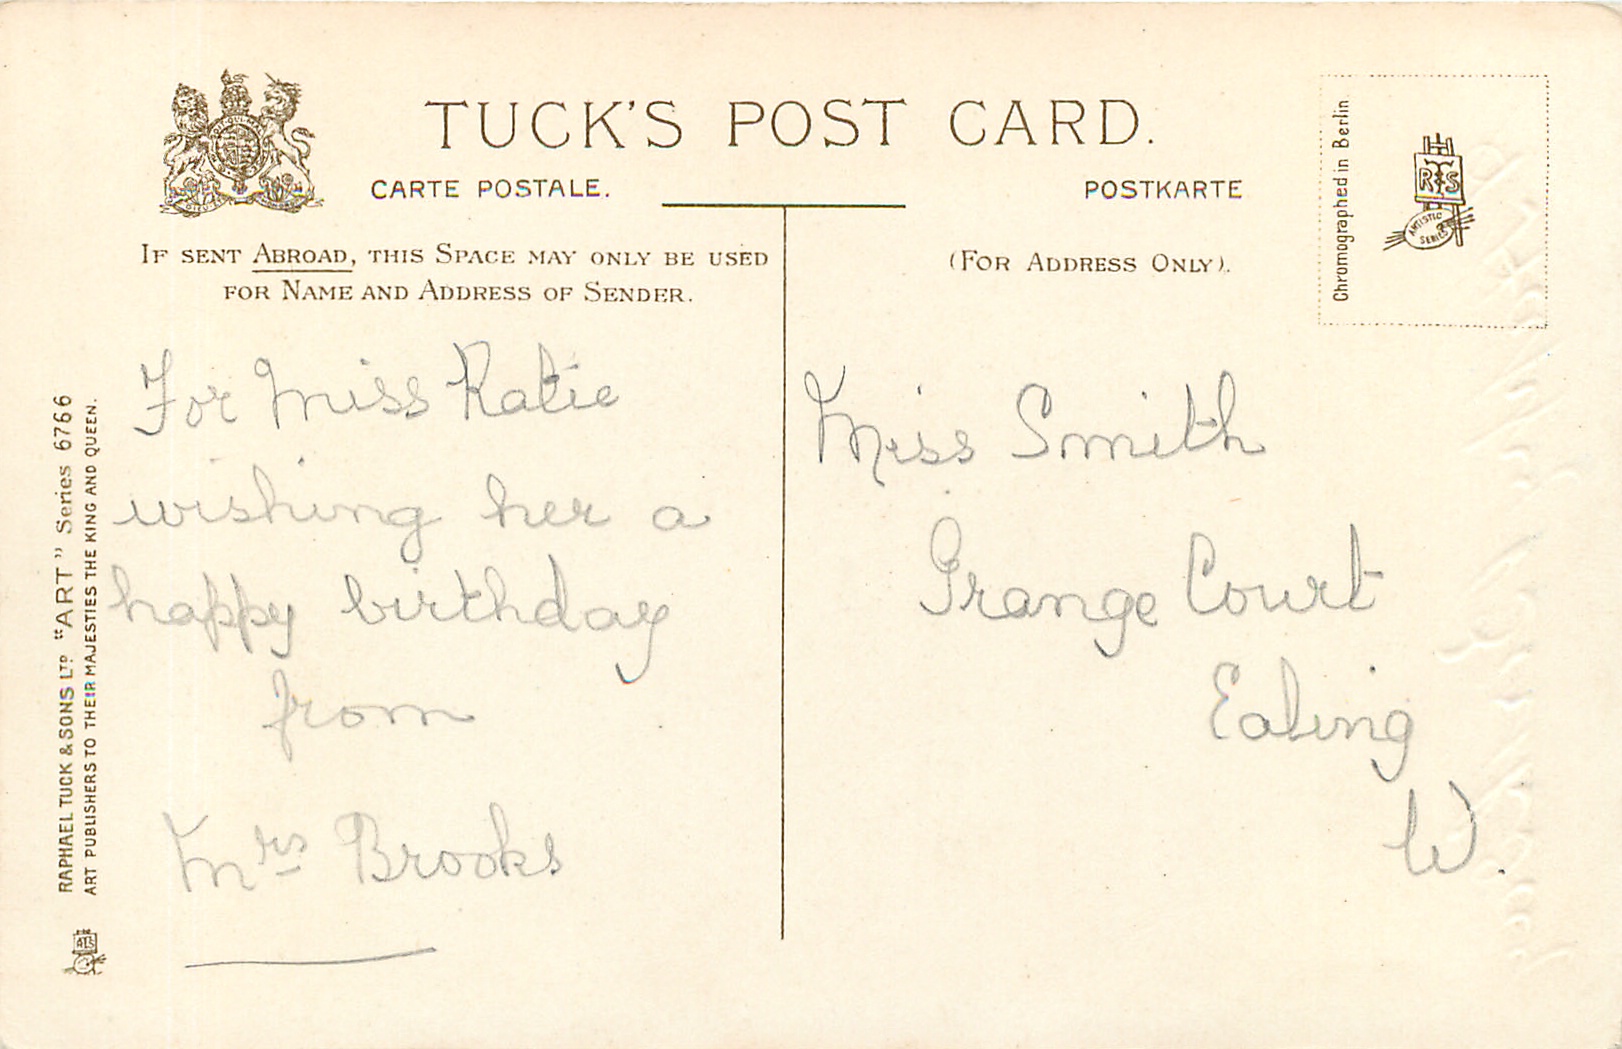 TUCK'S POST CARD.
CARTE POSTALE.
POSTKARTE
IF SENT ABROAD, THIS SPACE MAY ONLY BE USED
FOR NAME AND ADDRESS OF SENDER.
(FOR ADDRESS ONLY).
Chromographed in Berlin
R T S
ARTISTIC
SERIES
For Miss Katie
wishing her a
happy birthday
from
Mrs Brooks
Miss Smith
Grange Court
Ealing
W.
RAPHAEL TUCK & SONS LTD "ART" Series 6766
ART PUBLISHERS TO THEIR MAJESTIES THE KING AND QUEEN.